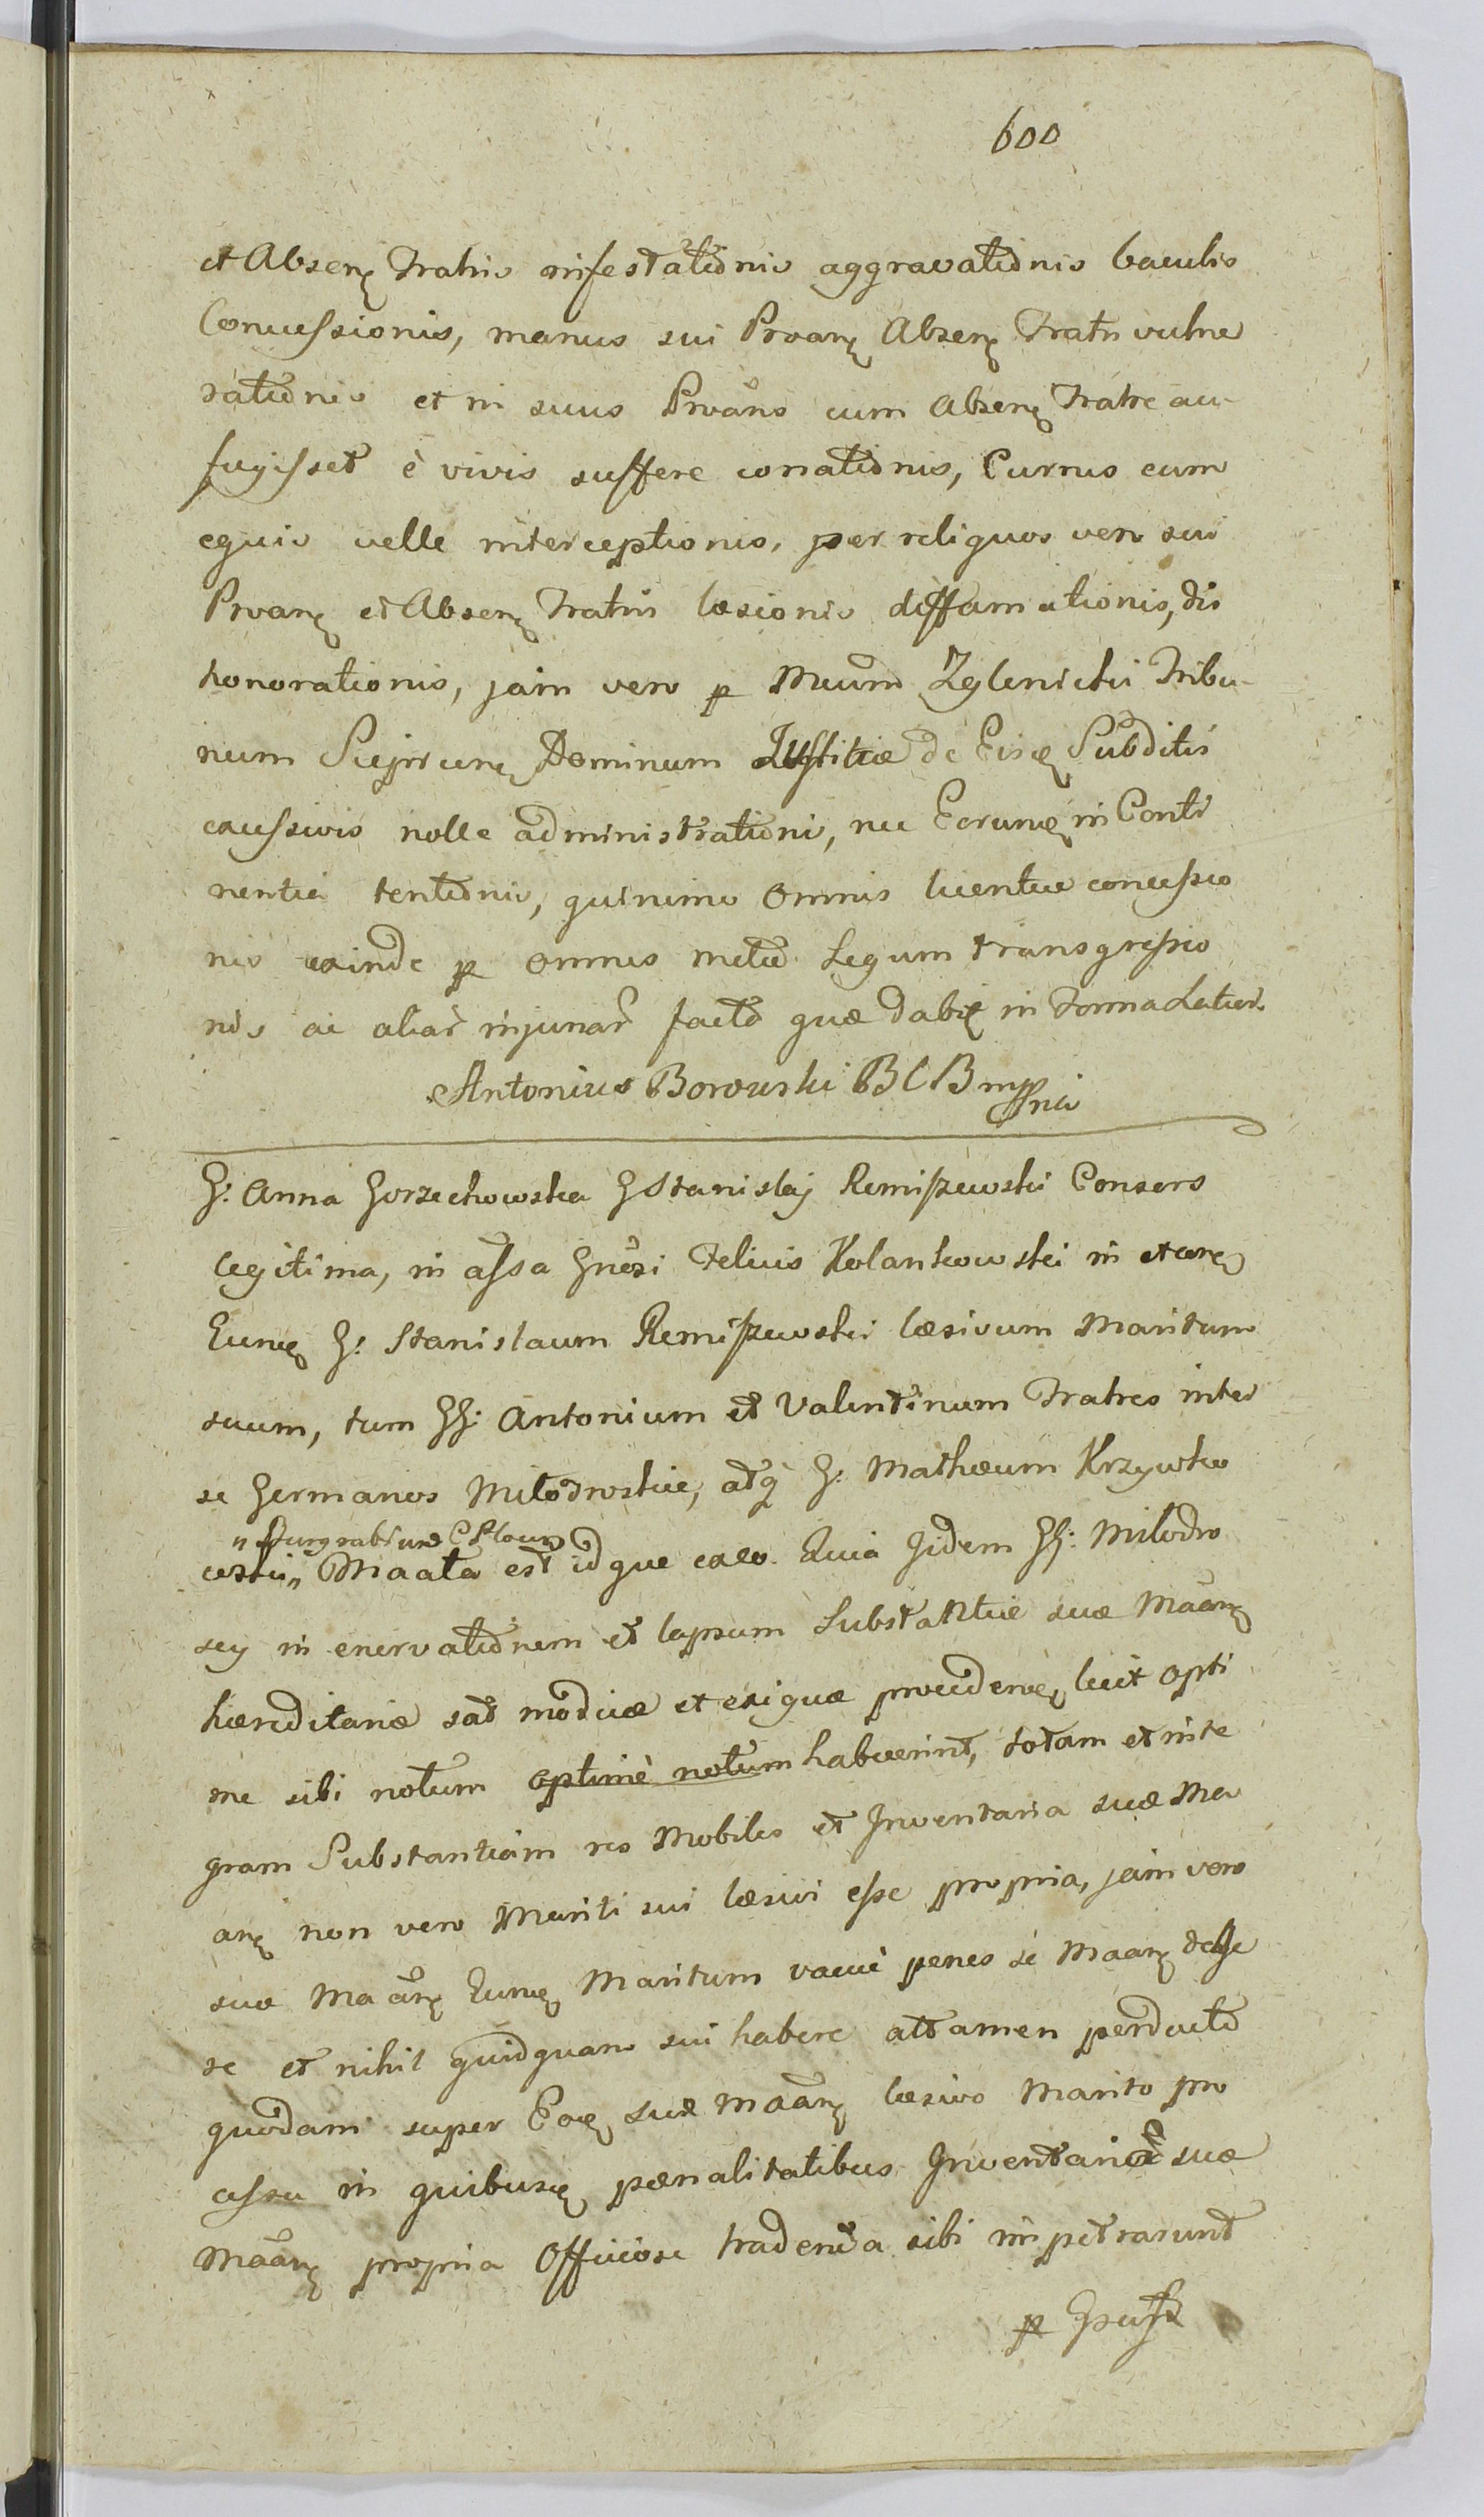 600
et Absenę Fratris infestationis aggravationis baculis
Concussionis, manus sui Proarę Absenę Fratri vulne
rationis et ni suus Proans cum Absenę Fratre au-
fugisset è vivis suffere conationis, Currus cum
equis velle interceptionis, per reliquos vero sui
Proanę et Absenę Fratris læsionis diffamationis, dis
honorationis, jam vero p Mcum Zglenicki Tribu-
num Dominum Justitiæ de Eisę Subditis
caussivis nolle administrationi, nec Eorumę in Conti
nentia tentionis, quinimo omnis licentiæ concessio
nis exinde p omnes metu Legum transgressio
nis ac aliar injuriar facto quæ dabit in Forma Latior.
Antonius Borowski B C B mppria
G: Anna Gorzechowska G Stanislaj Remiszewski Consors
legitima, in assa Gnosi Felicis Kolankowski in
Eumę G: Stanislaum Remiszewski læsivum Maritum
suum, tum GG: Antonium et Valentinum Fratres inter
se Germanos Milodroskie, atq G: Mathæum Krzywko
"Burgrabium
wski" Maata est idque exeo. Quia Jidem GG: Milodro
scy in enervationem et lapsum Substantiæ suæ Maanę
hæreditariæ sat modicæ et exiguæ providenę, licet opti
me sibi notum optimè notum habuerint, totam et inte
gram Substantiam res Mobiles et Inventaria suæ Ma
anę non vero Mariti sui læsivi esse propria, jam vero
suæ Maanę Eumę Maritum vacuè penes sè Maanę desse
se et nihil quidquam sui habere attamen perducto
quodam super Eoę suæ Maanę læsivo Marito pro
cessu in quibusę pænalitatibus Inventaria suæ
Maanę propria officiose tradenda sibi impetrarunt
p Ipsuss